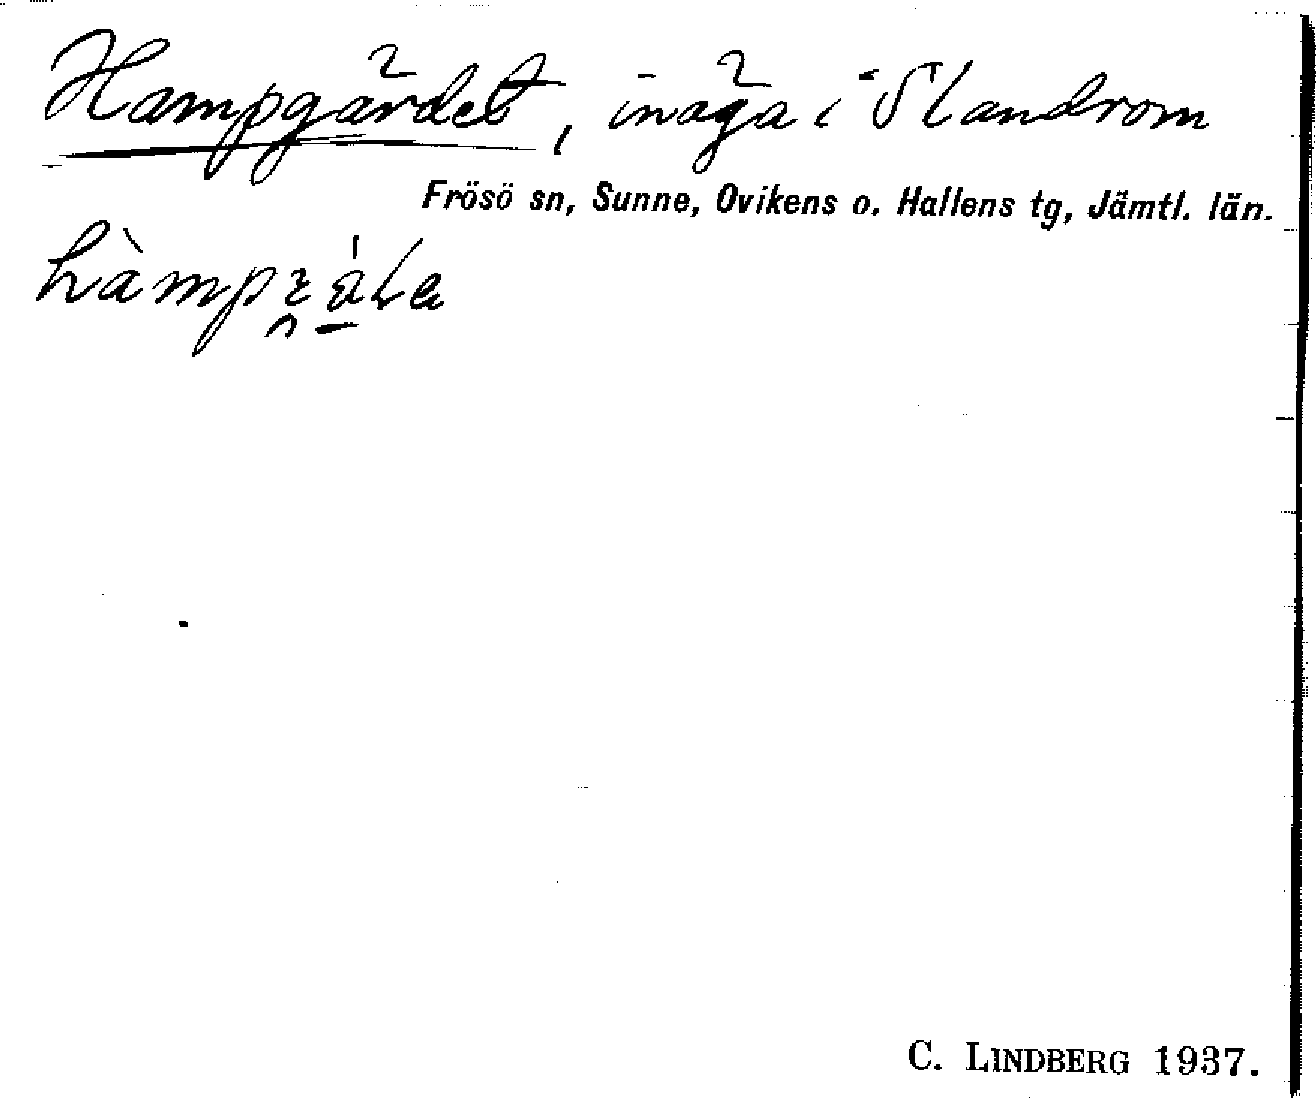 Hampgärdet, inäga i Slandrom
Frösö sn, Sunne, Ovikens o. Hallens tg, Jämtl. län.
C. LINDBERG 1937.